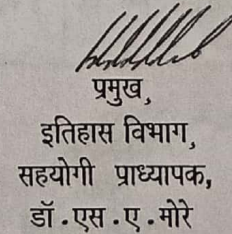 प्रमुख,
इतिहास विभाग,
सहयोगी प्राध्यापक,
डॉ.एस.ए.मोरे